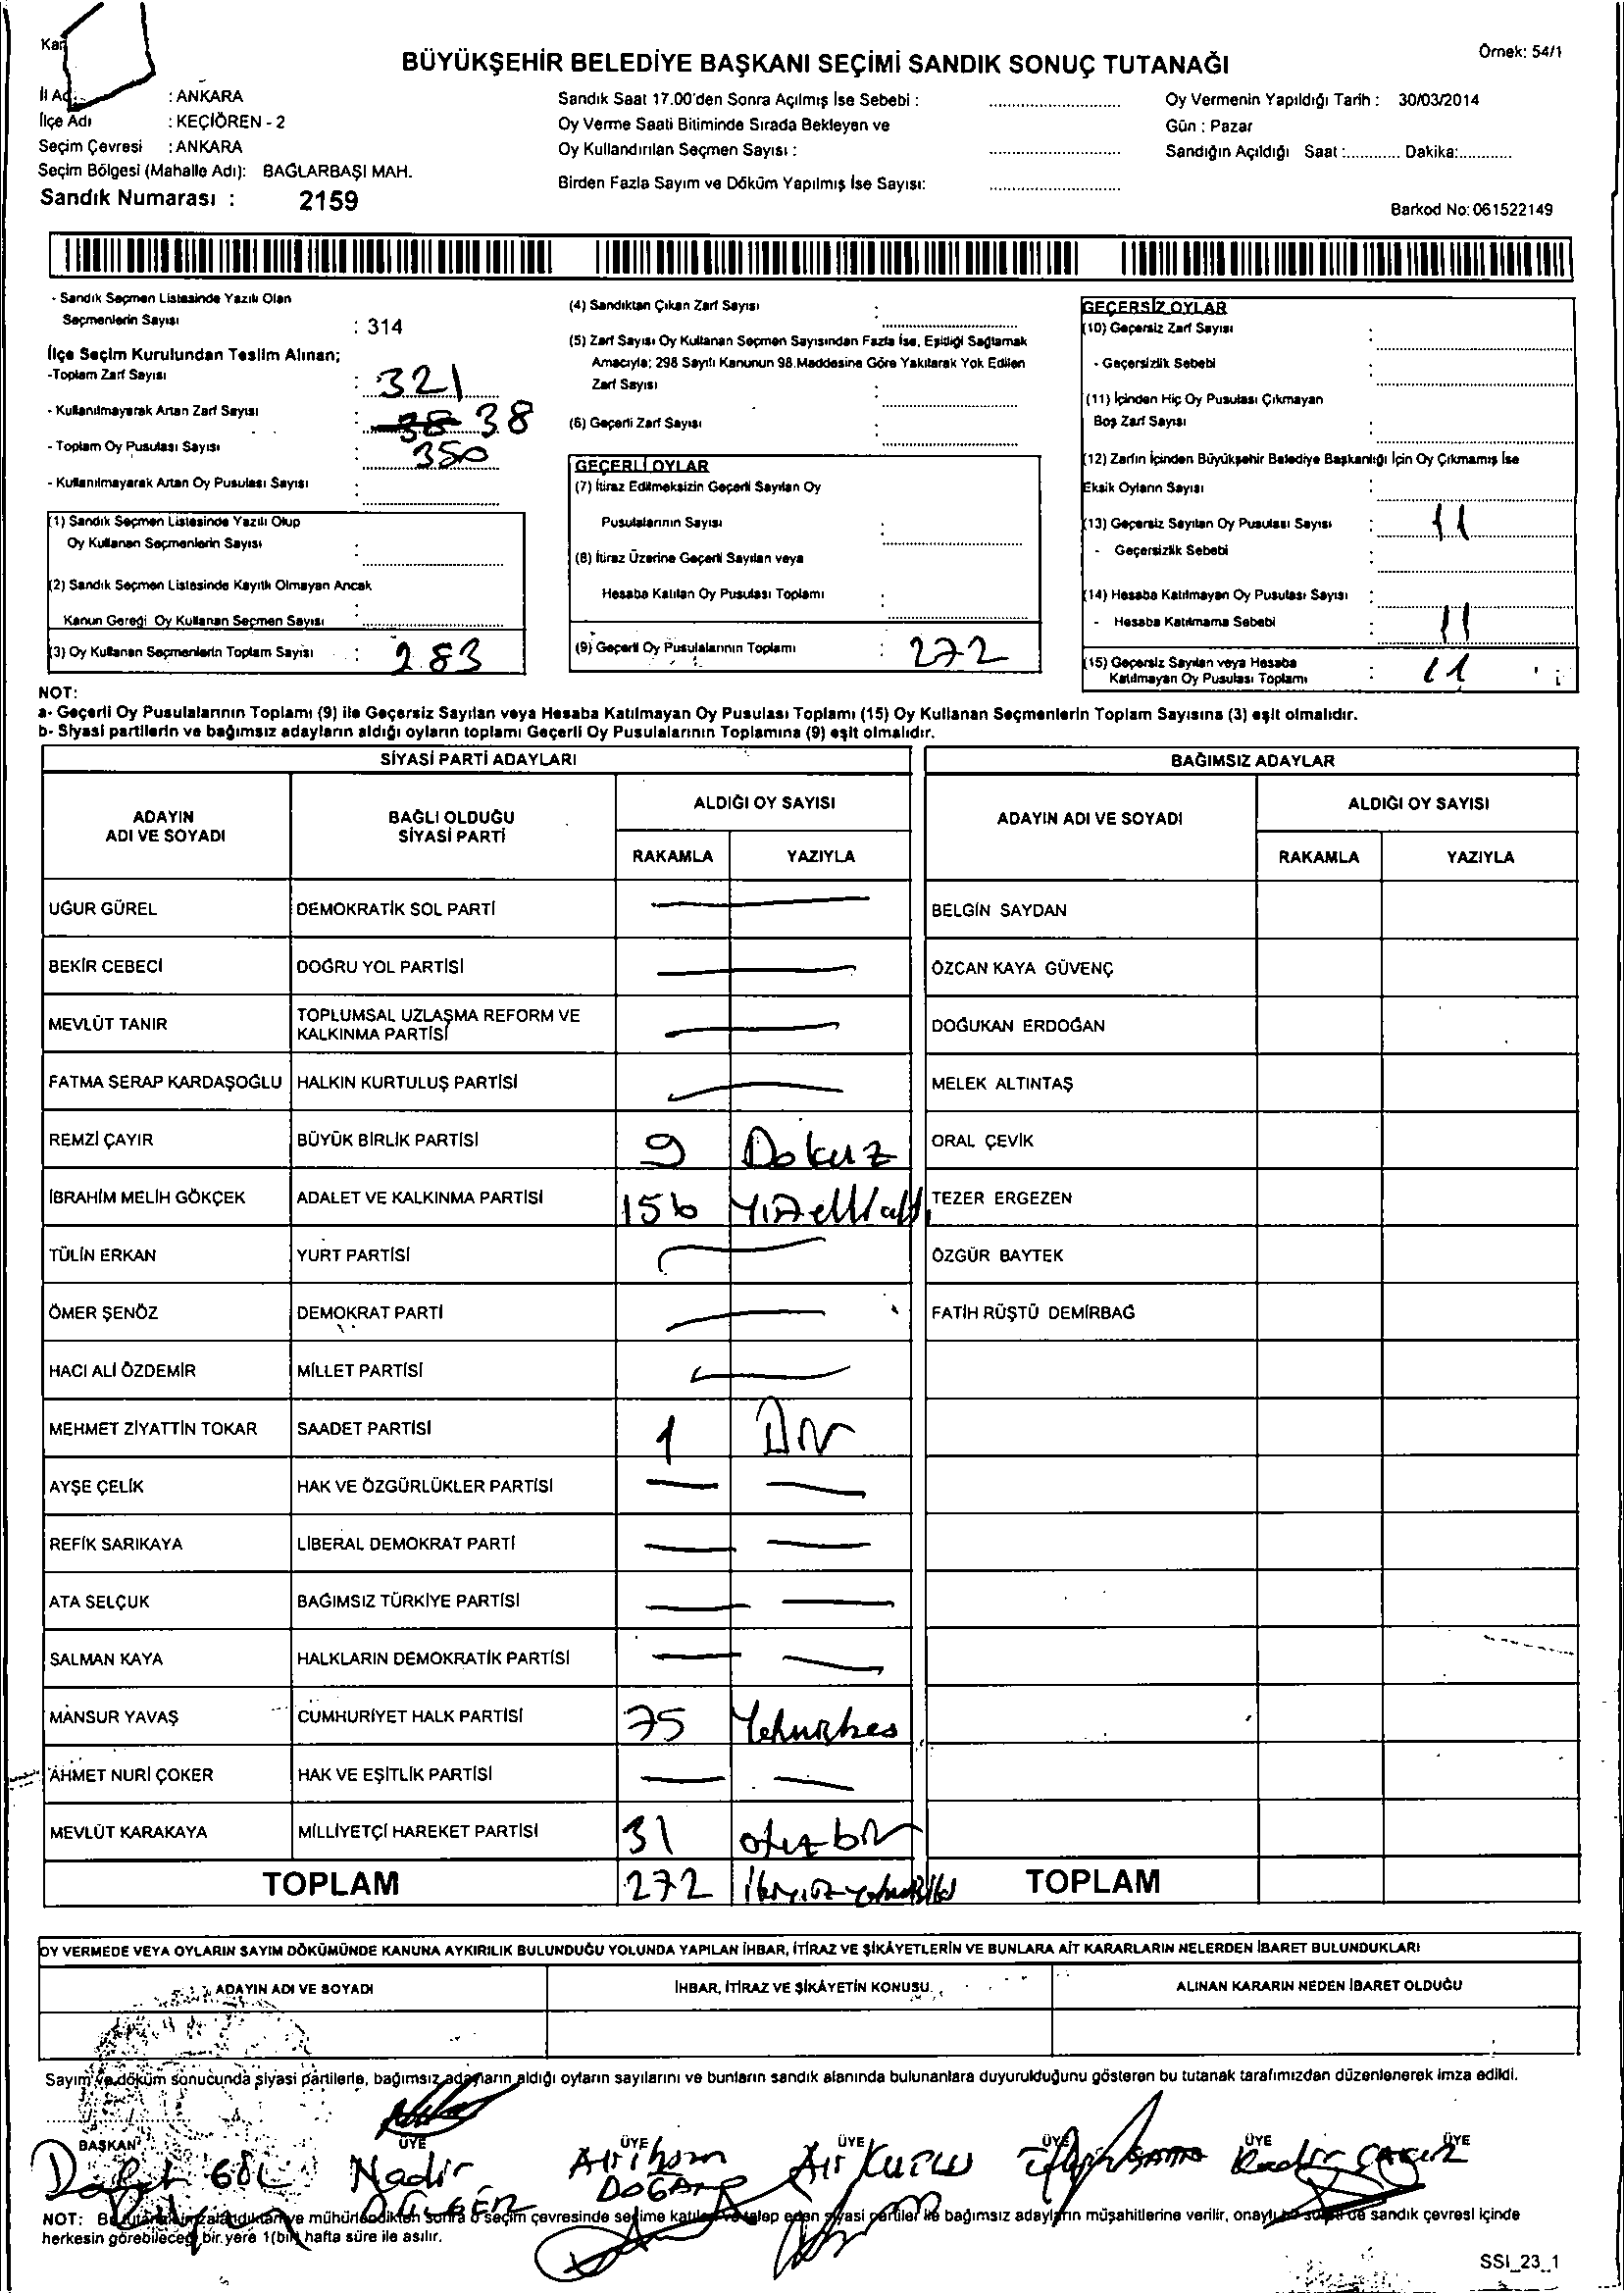 Örnek: 54/1
BÜYÜKŞEHİR BELEDİYE BAŞKANI SEÇİMİ SANDIK SONUÇ TUTANAĞI
: ANKARA
İlçe Adı : KEÇİÖREN - 2
Seçim Çevresi : ANKARA
Seçim Bölgesi (Mahalle Adı): BAĞLARBAŞI MAH.
Sandık Numarası : 2159
Sandık Saat 17.00'den Sonra Açılmış İse Sebebi :
Oy Verme Saati Bitiminde Sırada Bekleyen ve
Oy Kullandırılan Seçmen Sayısı :
Birden Fazla Sayım ve Döküm Yapılmış İse Sayısı:
Oy Vermenin Yapıldığı Tarih : 30/03/2014
Gün : Pazar
Sandığın Açıldığı Saat :............ Dakika:............
Barkod No: 061522149
- Sandık Seçmen Listesinde Yazılı Olan
Seçmenlerin Sayısı : 314
İlçe Seçim Kurulundan Teslim Alınan;
-Toplam Zarf Sayısı : 321
- Kullanılmayarak Artan Zarf Sayısı : 38
- Toplam Oy Pusulası Sayısı : 350
- Kullanılmayarak Artan Oy Pusulası Sayısı :
(1) Sandık Seçmen Listesinde Yazılı Olup
Oy Kullanan Seçmenlerin Sayısı :
(2) Sandık Seçmen Listesinde Kayıtlı Olmayan Ancak
Kanun Gereği Oy Kullanan Seçmen Sayısı :
(3) Oy Kullanan Seçmenlerin Toplam Sayısı : 283
(4) Sandıktan Çıkan Zarf Sayısı :
(5) Zarf Sayısı Oy Kullanan Seçmen Sayısından Fazla İse, Eşitliği Sağlamak
Amacıyla; 298 Sayılı Kanunun 98.Maddesine Göre Yakılarak Yok Edilen
Zarf Sayısı :
(6) Geçerli Zarf Sayısı :
GEÇERLİ OYLAR
(7) İtiraz Edilmeksizin Geçerli Sayılan Oy
Pusulalarının Sayısı :
(8) İtiraz Üzerine Geçerli Sayılan veya
Hesaba Katılan Oy Pusulası Toplamı :
(9) Geçerli Oy Pusulalarının Toplamı : 272
GEÇERSİZ OYLAR
(10) Geçersiz Zarf Sayısı :
- Geçersizlik Sebebi :
(11) İçinden Hiç Oy Pusulası Çıkmayan
Boş Zarf Sayısı :
(12) Zarfın İçinden Büyükşehir Belediye Başkanlığı İçin Oy Çıkmamış İse
Eksik Oyların Sayısı :
(13) Geçersiz Sayılan Oy Pusulası Sayısı : 11
- Geçersizlik Sebebi :
(14) Hesaba Katılmayan Oy Pusulası Sayısı :
- Hesaba Katılmama Sebebi : 11
(15) Geçersiz Sayılan veya Hesaba
Katılmayan Oy Pusulası Toplamı : 11
NOT:
a- Geçerli Oy Pusulalarının Toplamı (9) ile Geçersiz Sayılan veya Hesaba Katılmayan Oy Pusulası Toplamı (15) Oy Kullanan Seçmenlerin Toplam Sayısına (3) eşit olmalıdır.
b- Siyasi partilerin ve bağımsız adayların aldığı oyların toplamı Geçerli Oy Pusulalarının Toplamına (9) eşit olmalıdır.
SİYASİ PARTİ ADAYLARI BAĞIMSIZ ADAYLAR
ADAYIN ADI VE SOYADI BAĞLI OLDUĞU SİYASİ PARTİ ALDIĞI OY SAYISI ADAYIN ADI VE SOYADI ALDIĞI OY SAYISI
RAKAMLA YAZIYLA RAKAMLA YAZIYLA
UĞUR GÜREL DEMOKRATİK SOL PARTİ BELGİN SAYDAN
BEKİR CEBECİ DOĞRU YOL PARTİSİ ÖZCAN KAYA GÜVENÇ
MEVLÜT TANIR TOPLUMSAL UZLAŞMA REFORM VE KALKINMA PARTİSİ DOĞUKAN ERDOĞAN
FATMA SERAP KARDAŞOĞLU HALKIN KURTULUŞ PARTİSİ MELEK ALTINTAŞ
REMZİ ÇAYIR BÜYÜK BİRLİK PARTİSİ 9 Dokuz ORAL ÇEVİK
İBRAHİM MELİH GÖKÇEK ADALET VE KALKINMA PARTİSİ 156 Yüzellialtı TEZER ERGEZEN
TÜLİN ERKAN YURT PARTİSİ ÖZGÜR BAYTEK
ÖMER ŞENÖZ DEMOKRAT PARTİ FATİH RÜŞTÜ DEMİRBAĞ
HACI ALİ ÖZDEMİR MİLLET PARTİSİ
MEHMET ZİYATTİN TOKAR SAADET PARTİSİ 1 Bir
AYŞE ÇELİK HAK VE ÖZGÜRLÜKLER PARTİSİ
REFİK SARIKAYA LİBERAL DEMOKRAT PARTİ
ATA SELÇUK BAĞIMSIZ TÜRKİYE PARTİSİ
SALMAN KAYA HALKLARIN DEMOKRATİK PARTİSİ
MANSUR YAVAŞ CUMHURİYET HALK PARTİSİ 75 Yetmişbeş
AHMET NURİ ÇOKER HAK VE EŞİTLİK PARTİSİ
MEVLÜT KARAKAYA MİLLİYETÇİ HAREKET PARTİSİ 31 otuzbir
TOPLAM 272 ikiyüzyetmişiki TOPLAM
OY VERMEDE VEYA OYLARIN SAYIM DÖKÜMÜNDE KANUNA AYKIRILIK BULUNDUĞU YOLUNDA YAPILAN İHBAR, İTİRAZ VE ŞİKÂYETLERİN VE BUNLARA AİT KARARLARIN NELERDEN İBARET BULUNDUKLARI
ADAYIN ADI VE SOYADI İHBAR, İTİRAZ VE ŞİKÂYETİN KONUSU ALINAN KARARIN NEDEN İBARET OLDUĞU
Sayım ve döküm sonucunda siyasi partilerle, bağımsız adayların aldığı oyların sayılarını ve bunların sandık alanında bulunanlara duyurulduğunu gösteren bu tutanak tarafımızdan düzenlenerek imza edildi.
BAŞKAN ÜYE ÜYE ÜYE ÜYE ÜYE ÜYE
GÖL Nadir DOĞAN Ali KUTLU Kadir
NOT: Bu tutanak imzalandıktan ve mühürlendikten sonra o seçim çevresinde seçime katılan ve talep eden siyasi partiler ile bağımsız adayların müşahitlerine verilir, onaylı bir sureti de sandık çevresi içinde
herkesin görebileceği bir yere 1(bir) hafta süre ile asılır.
SSI_23_1